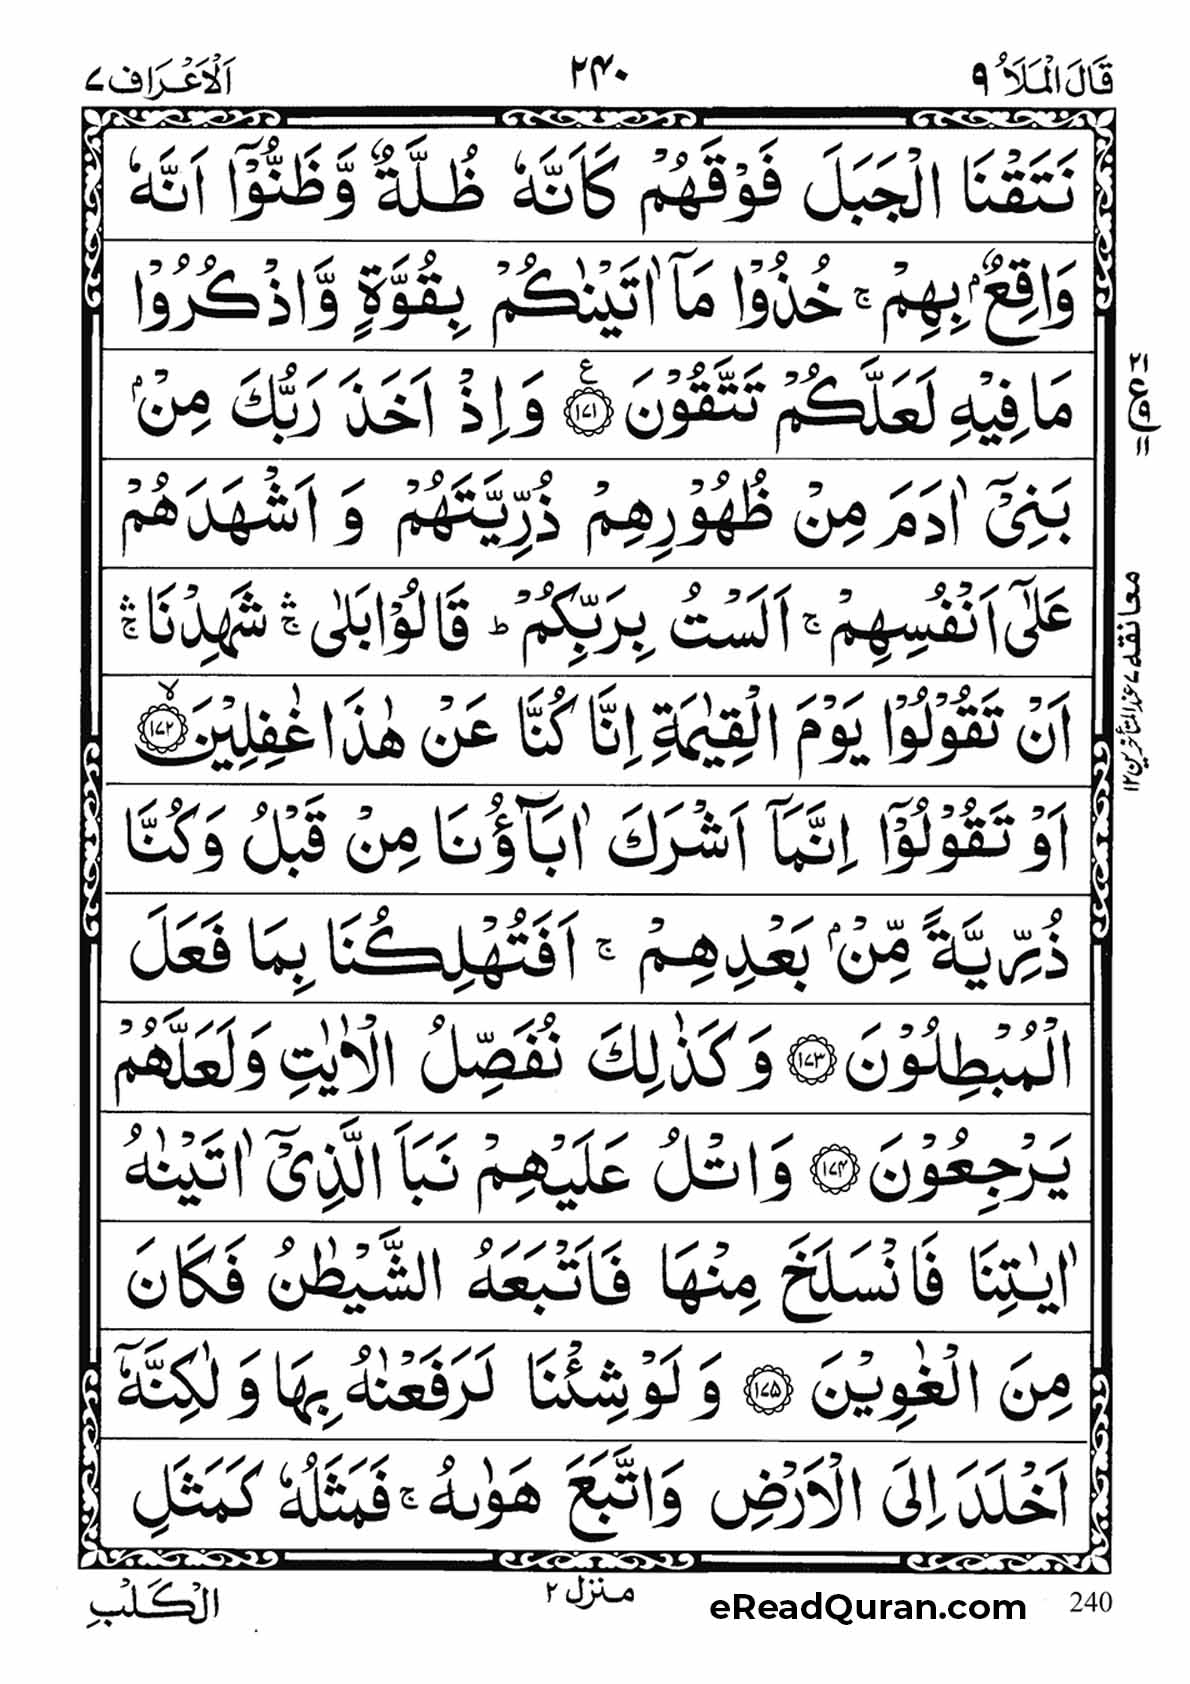 قَالَ الْمَلَاُ ٩
٢٤٠
اَلْاَعْرَاف ٧
نَتَقْنَا الْجَبَلَ فَوْقَهُمْ كَاَنَّهٗ ظُلَّةٌ وَّظَنُّوْۤا اَنَّهٗ
وَاقِعٌۢ بِهِمْ ۚ خُذُوْا مَاۤ اٰتَيْنٰكُمْ بِقُوَّةٍ وَّاذْكُرُوْا
مَا فِيْهِ لَعَلَّكُمْ تَتَّقُوْنَ ﴿١٧١﴾ ع وَاِذْ اَخَذَ رَبُّكَ مِنْۢ
بَنِىْۤ اٰدَمَ مِنْ ظُهُوْرِهِمْ ذُرِّيَّتَهُمْ وَ اَشْهَدَهُمْ
عَلٰٓى اَنْفُسِهِمْ ۚ اَلَسْتُ بِرَبِّكُمْ ؕ قَالُوْا بَلٰى ۛۚ شَهِدْنَا ۛۚ
اَنْ تَقُوْلُوْا يَوْمَ الْقِيٰمَةِ اِنَّا كُنَّا عَنْ هٰذَا غٰفِلِيْنَ ۙ﴿١٧٢﴾
اَوْ تَقُوْلُوْۤا اِنَّمَاۤ اَشْرَكَ اٰبَآؤُنَا مِنْ قَبْلُ وَكُنَّا
ذُرِّيَّةً مِّنْۢ بَعْدِهِمْ ۚ اَفَتُهْلِكُنَا بِمَا فَعَلَ
الْمُبْطِلُوْنَ ﴿١٧٣﴾ وَكَذٰلِكَ نُفَصِّلُ الْاٰيٰتِ وَلَعَلَّهُمْ
يَرْجِعُوْنَ ﴿١٧٤﴾ وَاتْلُ عَلَيْهِمْ نَبَاَ الَّذِىْۤ اٰتَيْنٰهُ
اٰيٰتِنَا فَانْسَلَخَ مِنْهَا فَاَتْبَعَهُ الشَّيْطٰنُ فَكَانَ
مِنَ الْغٰوِيْنَ ﴿١٧٥﴾ وَلَوْ شِئْنَا لَرَفَعْنٰهُ بِهَا وَلٰكِنَّهٗۤ
اَخْلَدَ اِلَى الْاَرْضِ وَاتَّبَعَ هَوٰٮهُ ۚ فَمَثَلُهٗ كَمَثَلِ
٢١
ع ٩
١١
معانقه ٧ عند المتأخرين ١٢
الْكَلْبِ
منزل ٢
eReadQuran.com
240